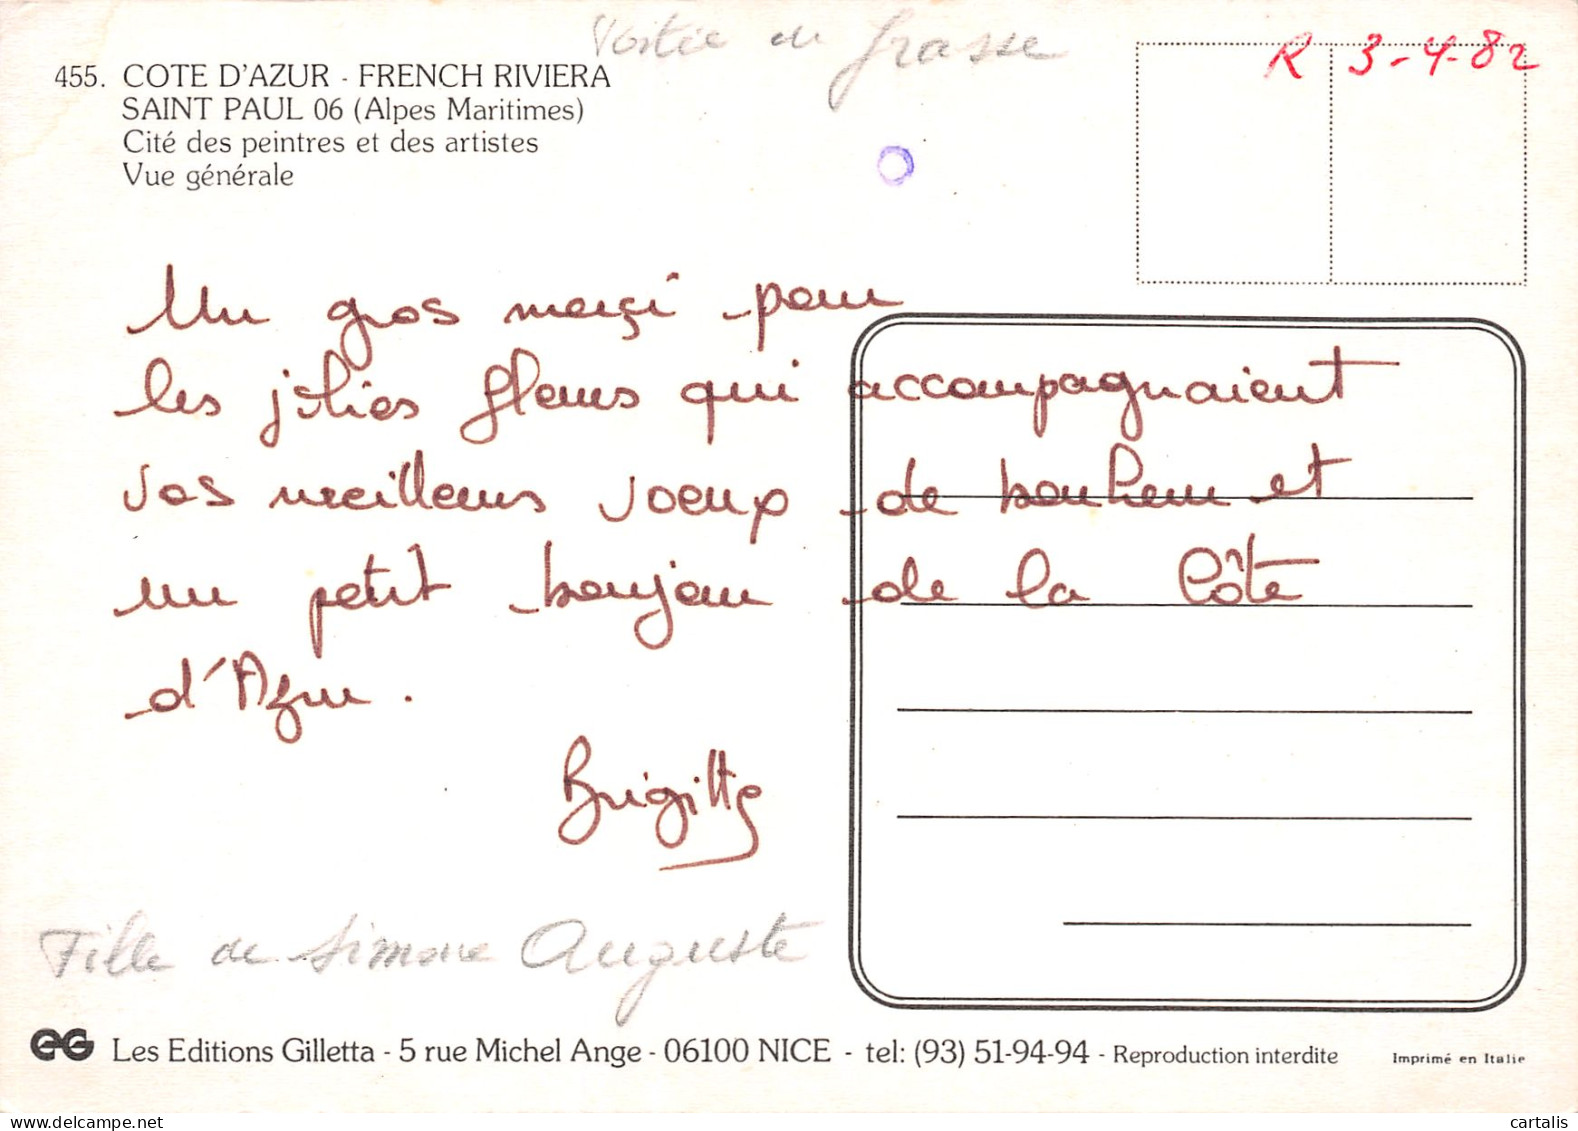 Postée de Grasse
R 3-4-82
455. COTE D'AZUR - FRENCH RIVIERA
SAINT PAUL 06 (Alpes Maritimes)
Cité des peintres et des artistes
Vue générale
Un gros merçi pour
les jolies fleurs qui accompagnaient
vos meilleurs voeux de bonheur et
un petit bonjour de la Côte
d'Azur.
Brigitte
Fille de Simone Auguste
EG Les Editions Gilletta - 5 rue Michel Ange - 06100 NICE - tel: (93) 51-94-94 - Reproduction interdite
Imprimé en Italie
cartalis